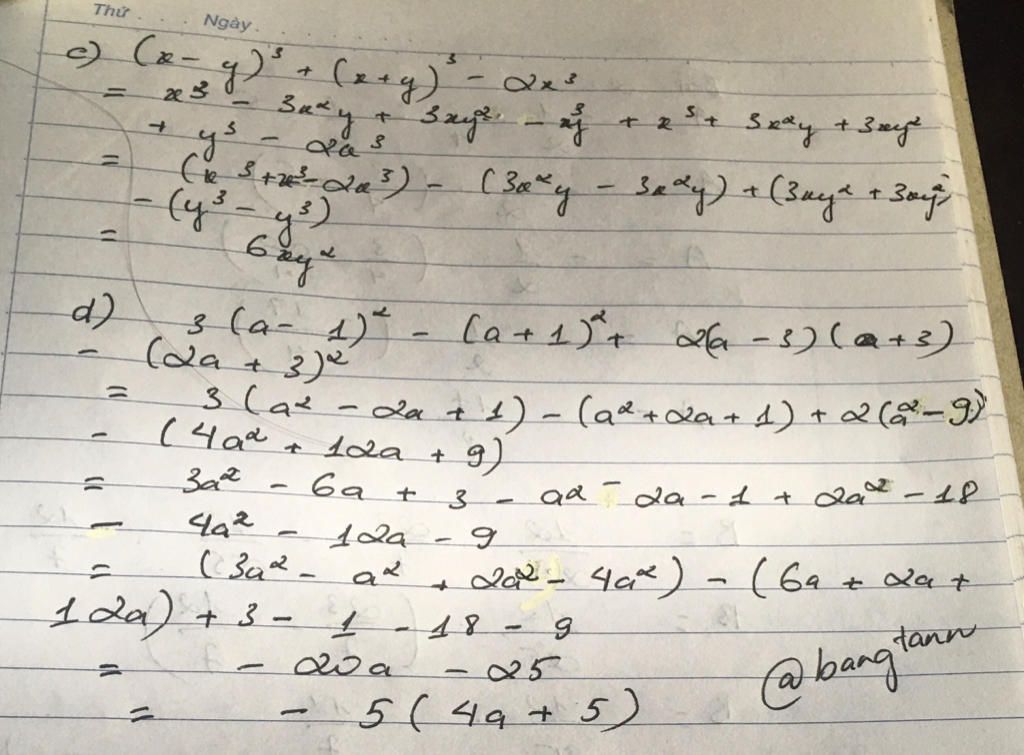 Thứ . . . . Ngày . . . .
c) (x - y)³ + (x + y)³ - 2x³
= x³ - 3x²y + 3xy² - y³ + x³ + 3x²y + 3xy²
+ y³ - 2x³
= (x³ + x³ - 2x³) - (3x²y - 3x²y) + (3xy² + 3xy²)
- (y³ - y³)
= 6xy²
d) 3 (a - 1)² - (a + 1)² + 2(a - 3) (a + 3)
- (2a + 3)²
= 3 (a² - 2a + 1) - (a² + 2a + 1) + 2 (a² - 9)
- (4a² + 12a + 9)
= 3a² - 6a + 3 - a² - 2a - 1 + 2a² - 18
- 4a² - 12a - 9
= (3a² - a² + 2a² - 4a²) - (6a + 2a +
12a) + 3 - 1 - 18 - 9
= - 20a - 25
= - 5 (4a + 5)
@bangtann